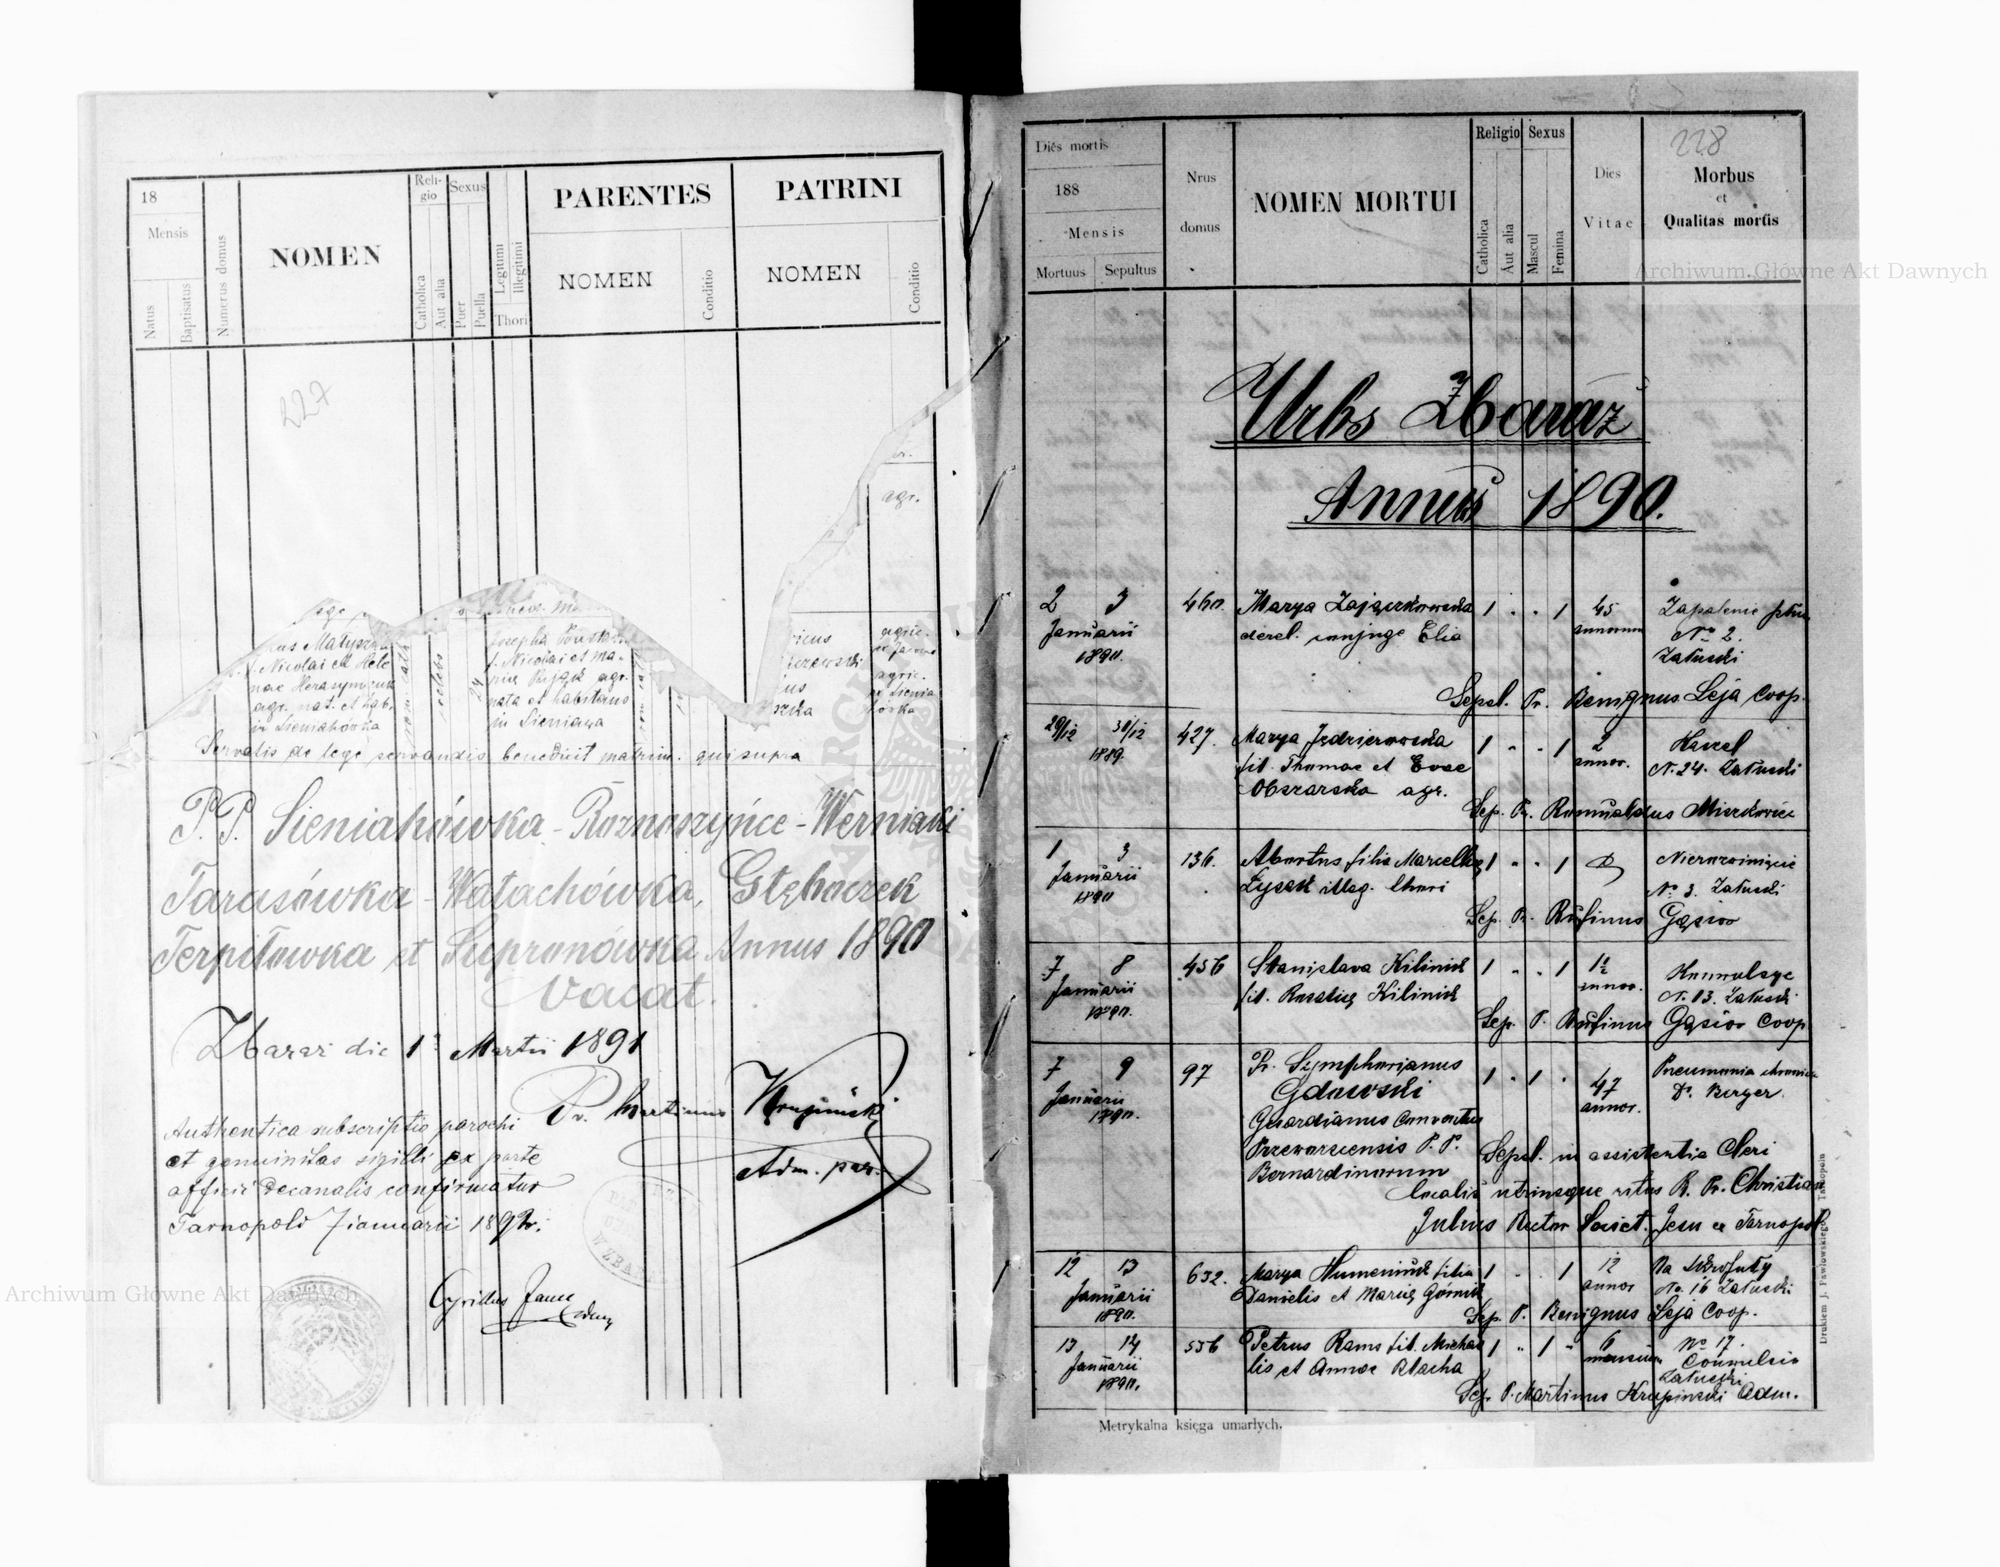 18
Mensis
Natus
Baptisatus
Numerus domus
NOMEN
Reli-
gio
Catholica
Aut alia
Sexus
Puer
Puella
Legitimi
Illegitimi
Thori
PARENTES
NOMEN
Conditio
PATRINI
NOMEN
Conditio
227
agr.
Nicolai et Hele
nae Herasymczuk
agr. nat. et hab.
in Sieniahówka
f. Nicolai et Ma-
riae agr.
nata et habitans
in Sieniawa
Servatis de lege servandis benedixit matrim. qui supra
P.P. Sieniahówka - Roznoszyńce - Werniaki
Tarasówka - Wałachówka, Głęboczek
Terpiłówka et Szepronówka Annus 1890
Vacat.
Zbaraż die 1 Martii 1891
Pr. Martinus Krupiński
Adm. par.
Authentica subscriptio parochi
et genuinitas sigilli ex parte
officii Decanalis confirmatur
Tarnopoli 7 januarii 1892.
Cyrillus
228
Dies mortis
188
Mensis
Mortuus
Sepultus
Nrus
domus
NOMEN MORTUI
Religio
Catholica
Aut alia
Sexus
Mascul
Femina
Dies
Vitae
Morbus
et
Qualitas mortis
Urbs Zbaraż
Annus 1890.
2 3 460. Marya Zajączkowska 1 " " 1 45 Zapalenie płuc
Januarii derel. conjuge Elia annorum No 2.
1890. Załuski
Sepel. Pr. Benignus Seja Coop.
29/12 30/12 427. Marya Jędrzejowska 1 " " 1 2 Kaszel
1889. fil. Thomae et Evae annor. N. 24. Załuski
Obszarska agr.
Sep. Pr. Romualdus Miszkowicz
1 3 136. Abortus filia Marcella 1 " " 1 Nierozwinięcie
Januarii Łysak illeg. thori No 3. Załuski
1890
Sep. Pr. Rufinus Gąsior
7 8 456 Stanislava Kilinik 1 " " 1 1½ Konwulsye
Januarii fil. Rosalię Kilinik annor. N. 13. Załuski
1890.
Sep. P. Rufinus Gąsior Coop
7 9 97 Pr. Symphorianus 1 " 1 " 47 Pneumonia chronica
Januarii Gdowski annor. Dr. Berger.
1890.
Guardianus Conventus
Przeworscensis P. P.
Bernardinorum
Sepel. in assistentia Cleri
localis utriusque ritus R. Pr. Christian
Julius Rector Societ. Jesu ex Tarnopol
12 13 632. Marya Humeniuk filia 1 " " 1 12 Na Skrofuły
Januarii Danielis et Marię Górnik annor No. 16 Załuski
1890.
Sep. P. Benignus Seja Coop.
13 14 556 Petrus Rams fil. Michae 1 " 1 " 6 No 17.
Januarii lis et Annae Blacha mensium Convulsio
1890. Załuski
Sep. P. Martinus Krupinski Adm.
Metrykalna księga umarłych.
Drukiem J. Pawłowskiego Tarnopolu
Archiwum Główne Akt Dawnych
Archiwum Główne Akt Dawnych